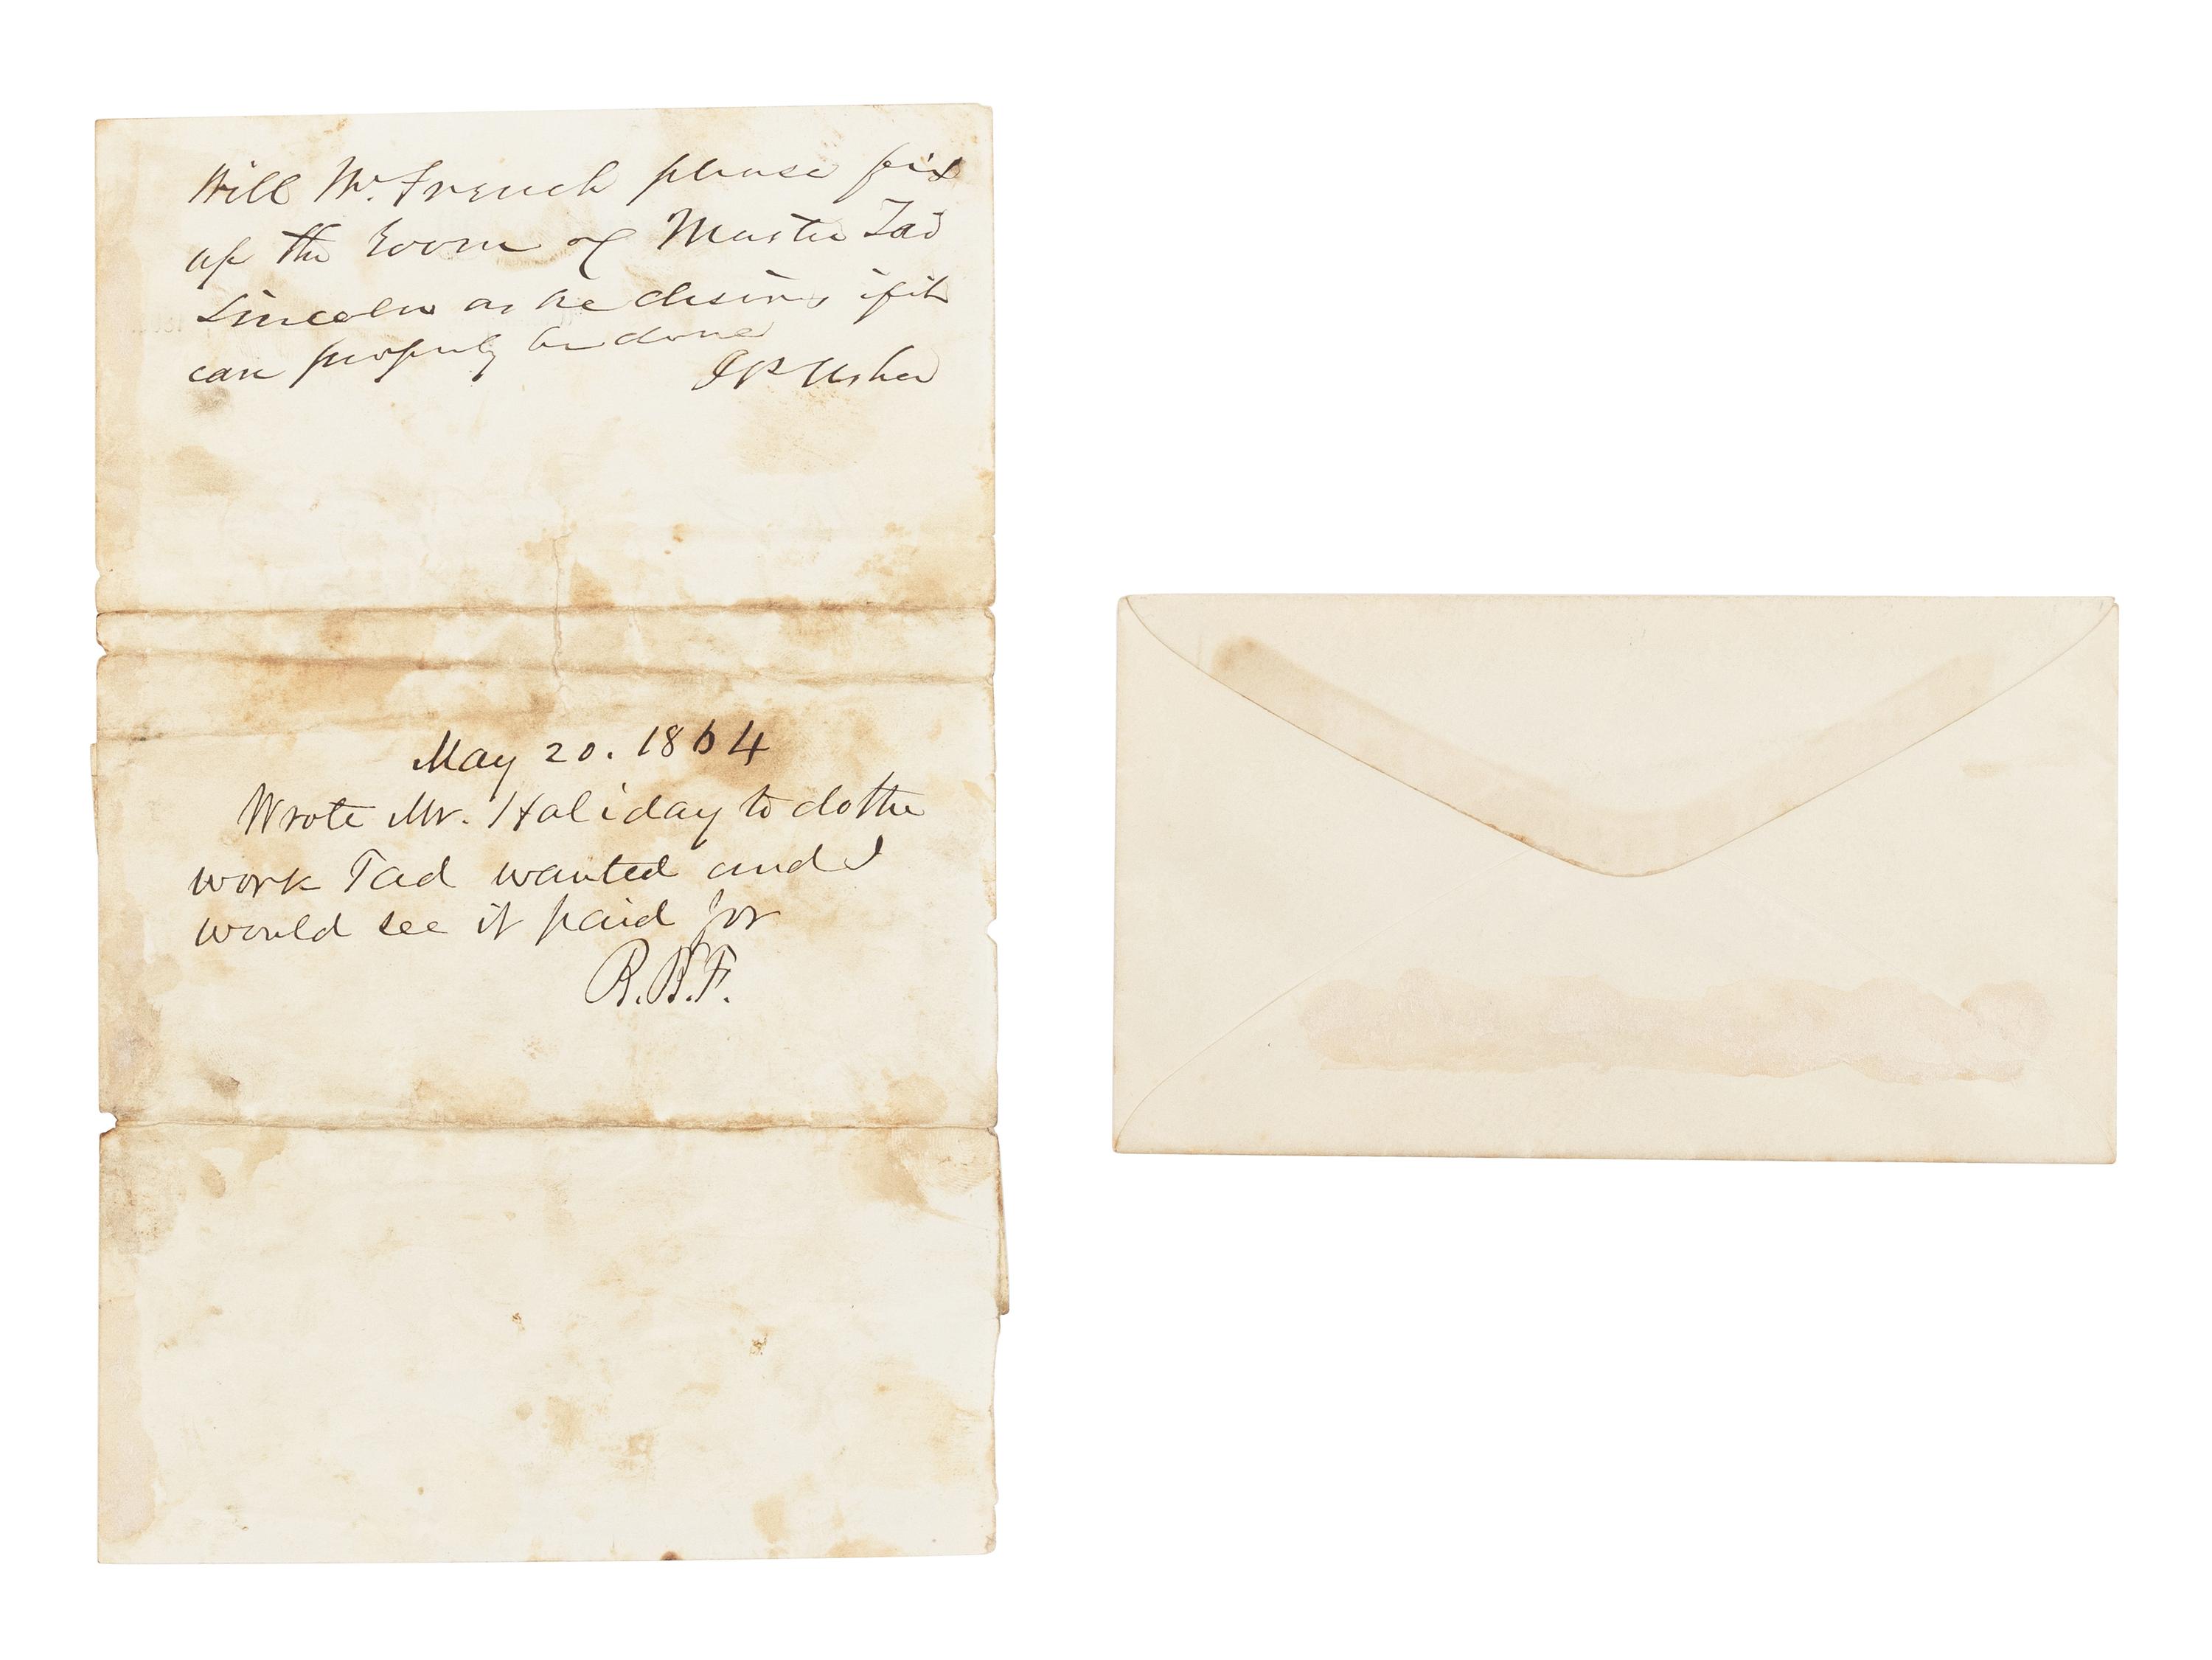 Will Mr. French please fix
up the Room of Master Tad
Lincoln as he desires if it
can properly be done
J P Usher
May 20. 1864
Wrote Mr. Haliday to do the
work Tad wanted and I
would see it paid for
B.B.F.